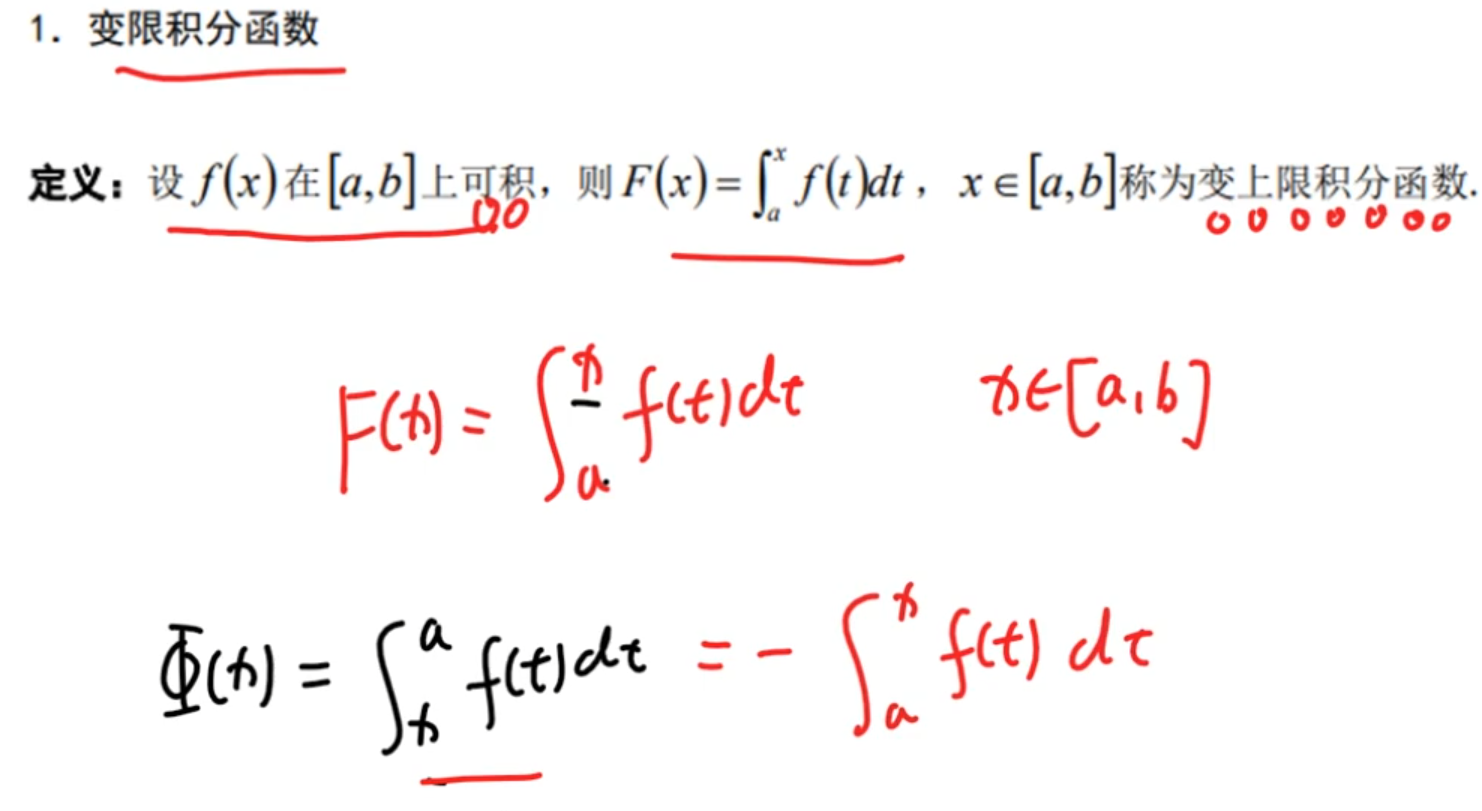 1. 变限积分函数
定义：设 f(x) 在 [a,b] 上可积，则 F(x)=∫_a^x f(t)dt，x∈[a,b] 称为变上限积分函数.
F(x) = ∫_a^x f(t)dt x∈[a,b]
Φ(x) = ∫_x^a f(t)dt = - ∫_a^x f(t)dt